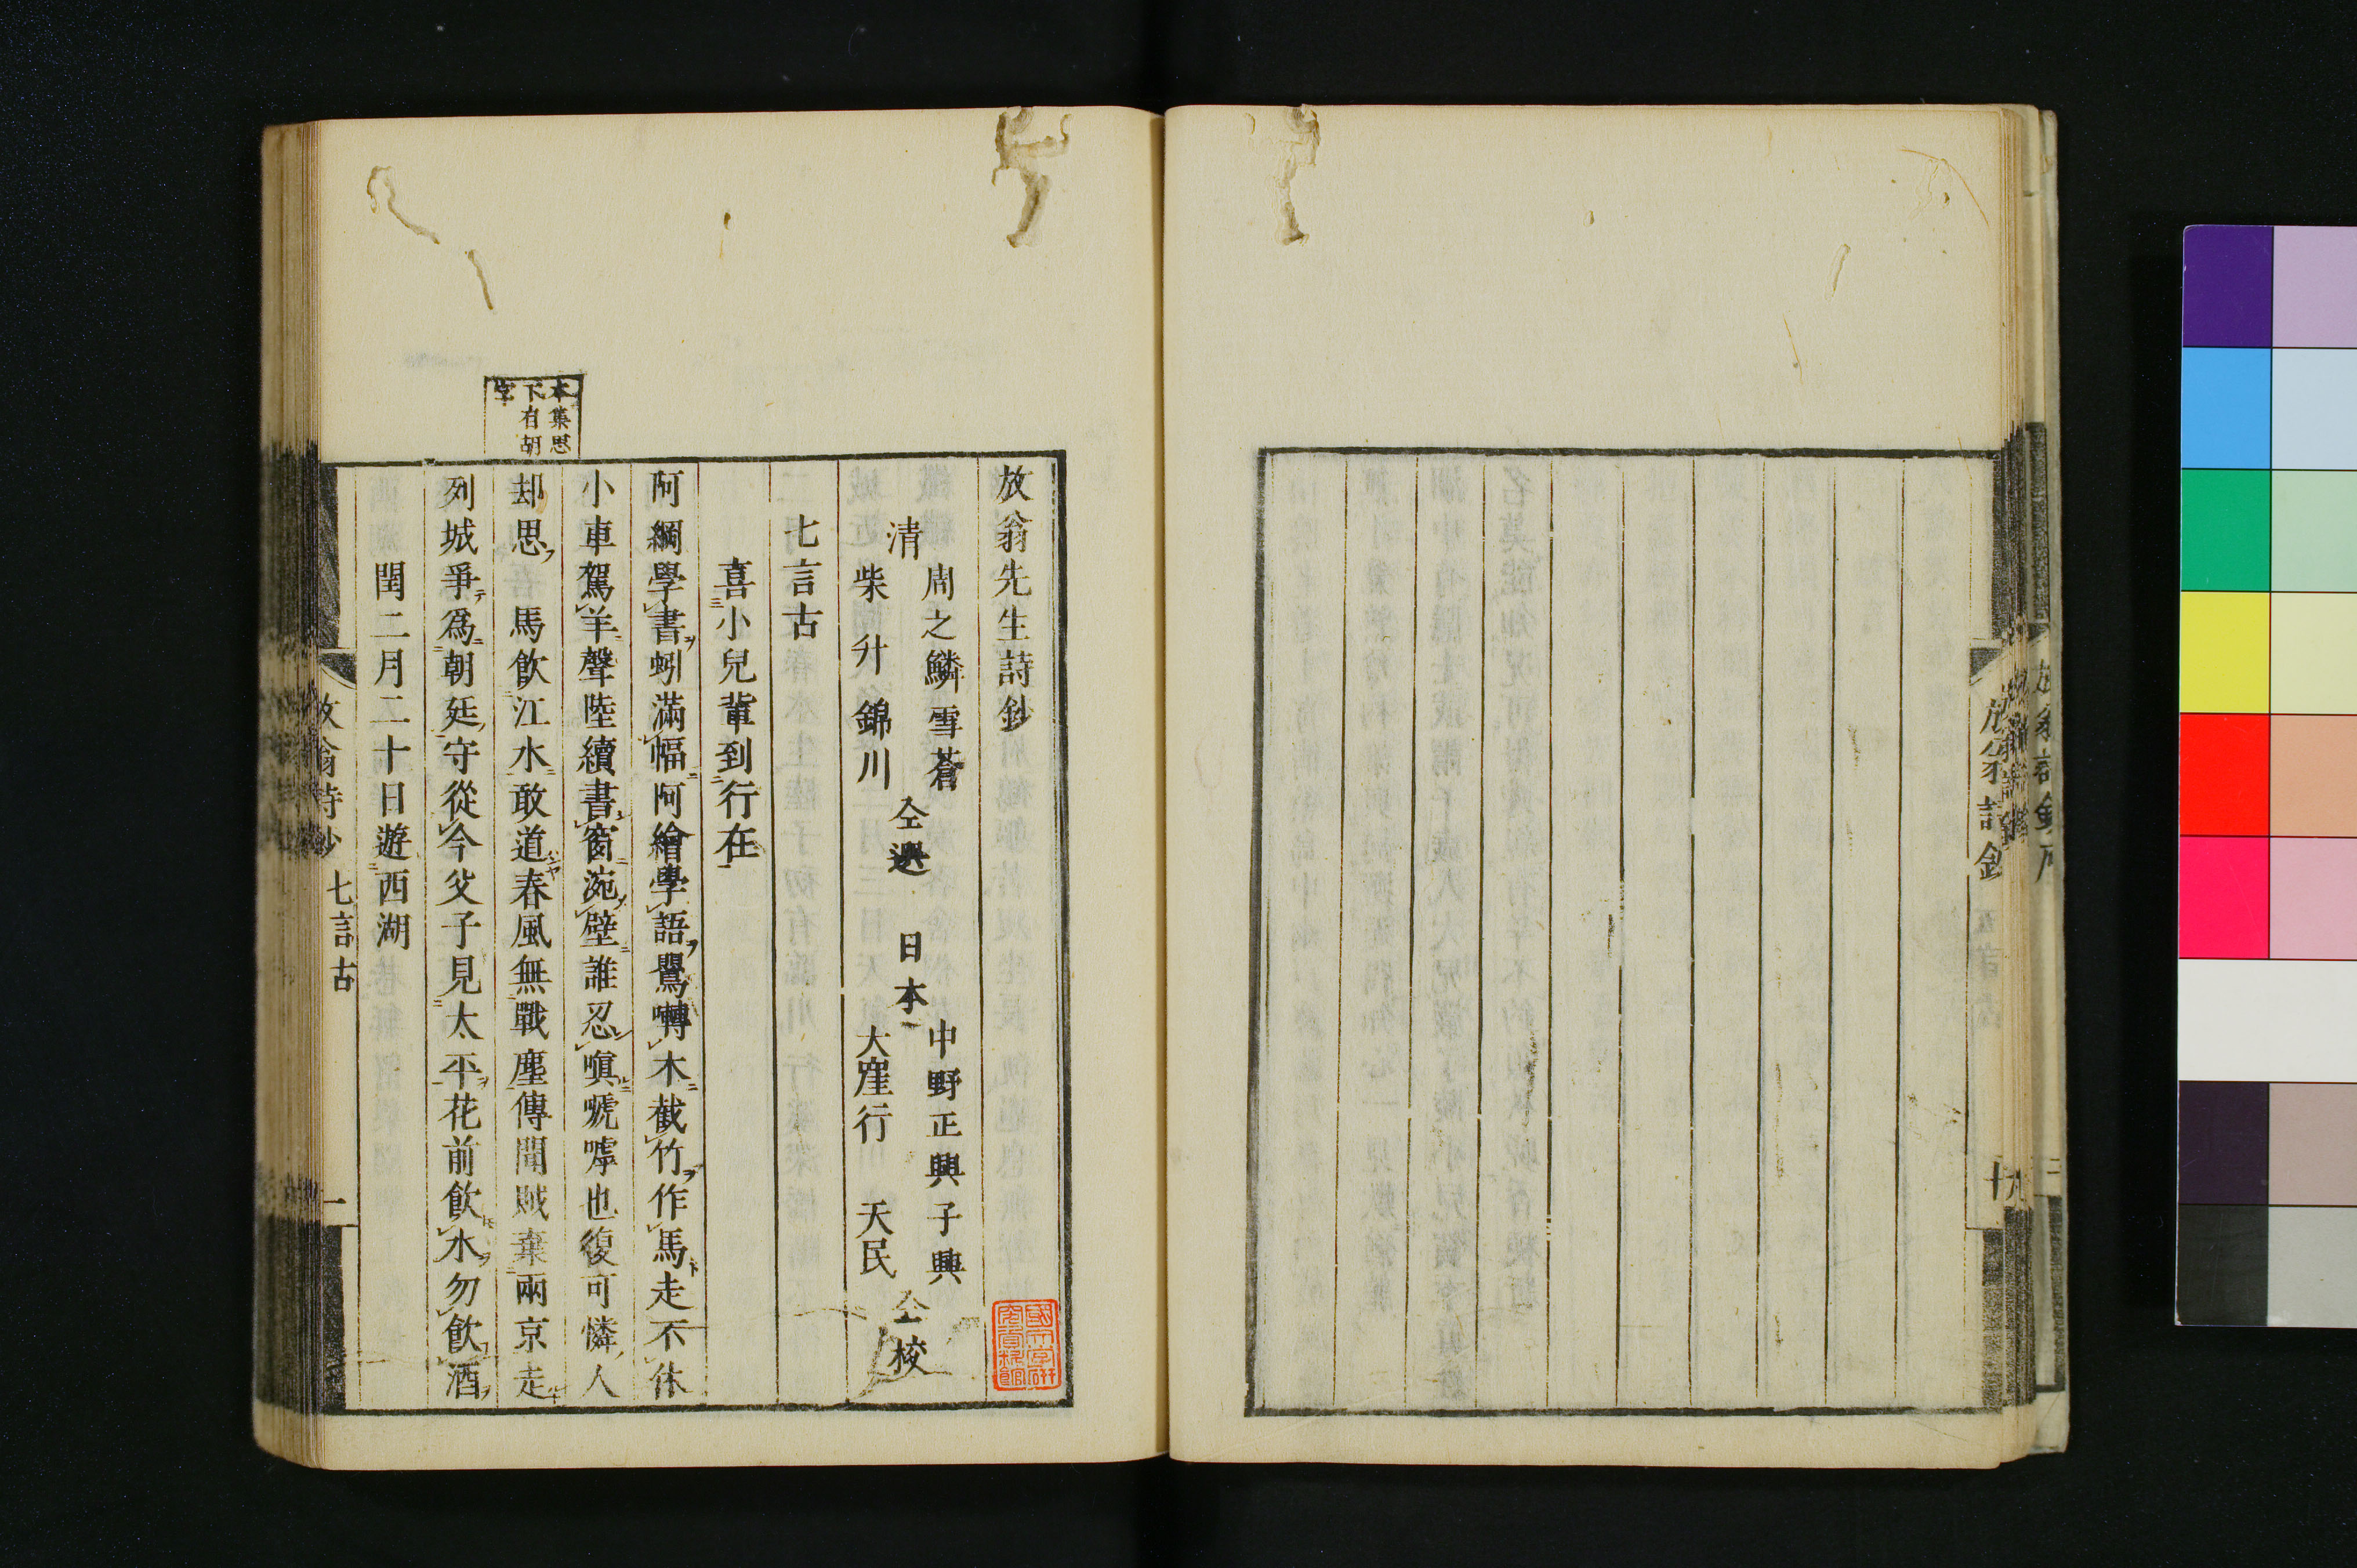 放翁先生詩鈔
清
周之鱗雪蒼
柴升錦川
仝選
日本
中野正興子興
大窪行天民
仝校
七言古
喜小兒輩到行在
阿綱學書蚓滿幅阿繪學語鸎囀木截竹作馬走不休
小車駕羊聲陸續書窗涴壁誰忍嗔啼嘑也復可憐人
却思 馬飲江水敢道春風無戰塵傳聞賊棄兩京走
列城爭爲朝廷守從今父子見太平花前飲水勿飲酒
閏二月二十日遊西湖
本集思
下有胡
字
放翁詩鈔 七言古 一
國文學研
究資料館
放翁詩鈔 五言古 十九